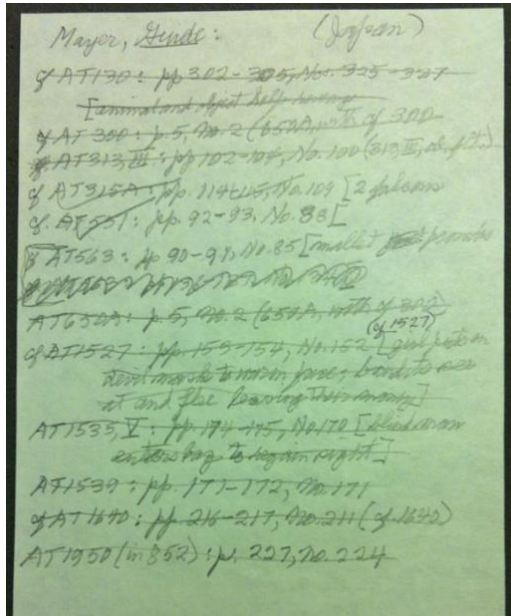 Mayer, Guide: (Japan)
cf AT130: pp 302-305, Nos. 325-327
[animal and object help
cf AT 300: p. 5, No. 2 (650A, with cf 300
cf. AT313, III: pp 102-104, No. 100 (313, III,
cf AT315A: pp. 114-115, No. 109 [2 falcons
cf. AT551: pp. 92-93, No. 88 [
cf AT563: pp 90-91, No. 85 [mallet
AT650A: p. 5, No. 2 (650A, with cf 300)
cf AT1527: pp. 153-154, No. 152 (cf 1527) [girl puts on
devil mask to warm face; bandits see
it and flee leaving their money]
AT1535, V: pp 174-175, No. 170 [blind man
enters bag to regain sight]
AT1539: pp. 171-172, No. 171
cf AT 1640: pp. 216-217, No. 211 (cf. 1640)
AT1950 (in 852): p. 227, No. 224